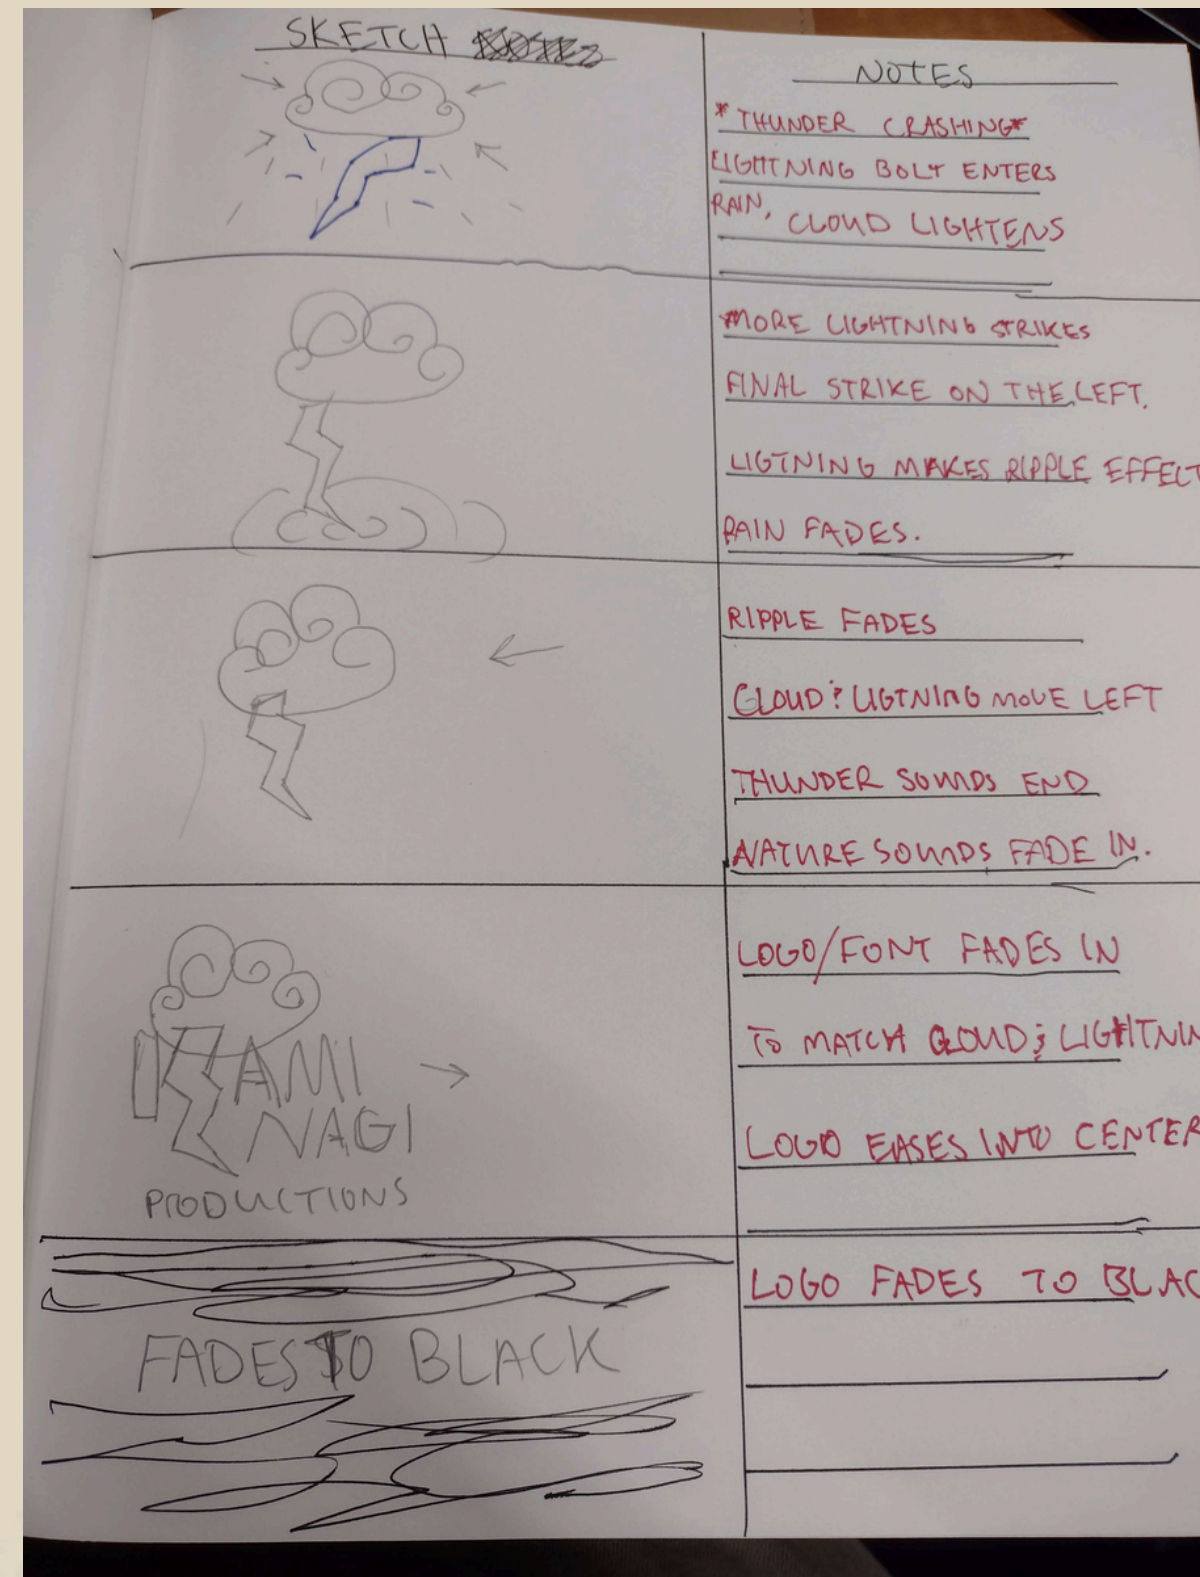 SKETCH
NOTES
*THUNDER CRASHING*
LIGHTNING BOLT ENTERS
RAIN, CLOUD LIGHTENS
*MORE LIGHTNING STRIKES
FINAL STRIKE ON THE LEFT.
LIGTNING MAKES RIPPLE EFFECT
RAIN FADES.
RIPPLE FADES
CLOUD & LIGTNING MOVE LEFT
THUNDER SOUNDS END
NATURE SOUNDS FADE IN.
KAMI
NAGI
PRODUCTIONS
LOGO/FONT FADES IN
TO MATCH CLOUD & LIGHTNIN
LOGO EASES INTO CENTER
FADES TO BLACK
LOGO FADES TO BLAC